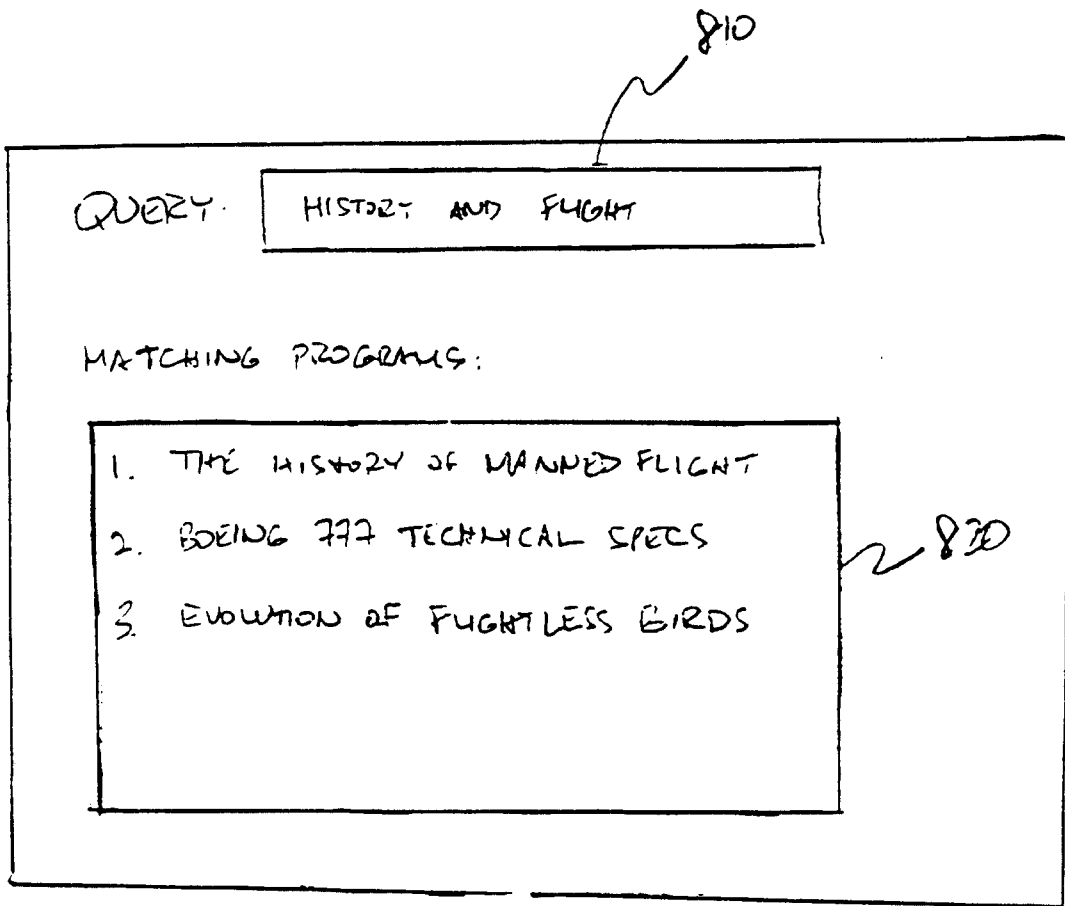 810
QUERY: HISTORY AND FLIGHT
MATCHING PROGRAMS:
1. THE HISTORY OF MANNED FLIGHT
2. BOEING 777 TECHNICAL SPECS
3. EVOLUTION OF FLIGHTLESS BIRDS
830